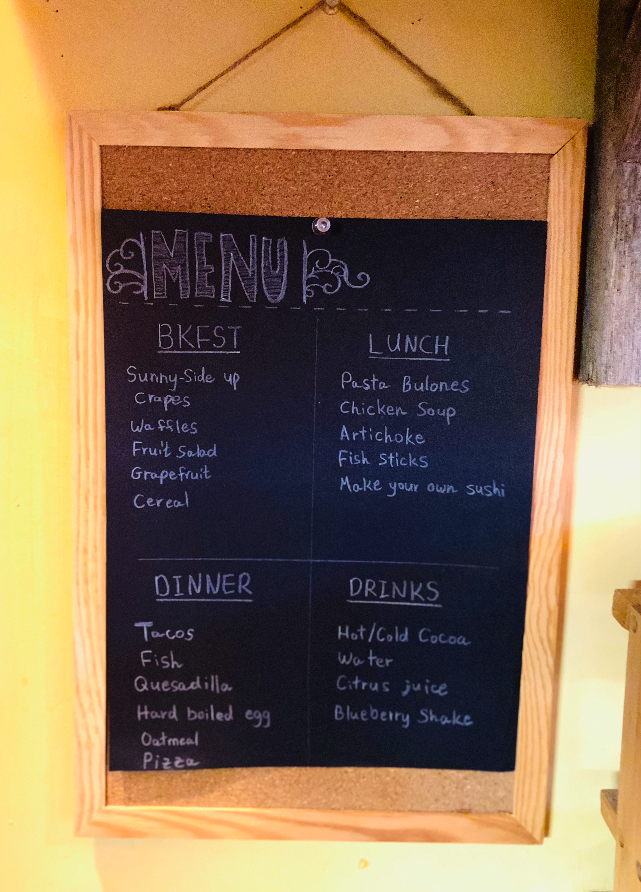 MENU
BKFST
Sunny-Side up
Crapes
Waffles
Fruit Salad
Grapefruit
Cereal
LUNCH
Pasta Bulones
Chicken Soup
Artichoke
Fish Sticks
Make your own sushi
DINNER
Tacos
Fish
Quesadilla
Hard boiled egg
Oatmeal
Pizza
DRINKS
Hot/Cold Cocoa
Water
Citrus juice
Blueberry Shake